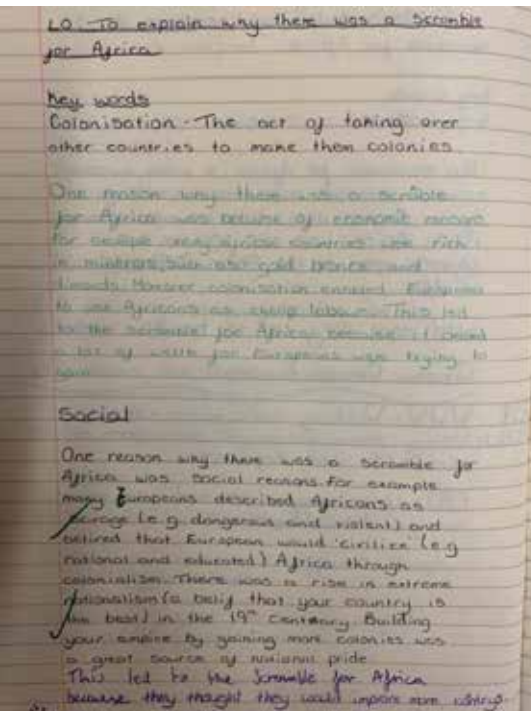 LO: To explain why there was a Scramble
for Africa
Key words
Colonisation - The act of taking over
other countries to make them colonies
One reason why there was a scramble
for Africa was because of economic reasons
for example many African countries were rich
in minerals, such as gold bronze and
colonisation enabled Europeans
to use Africans as cheap labour. This led
to the scramble for Africa because it
a lot of for Europeans were trying to
Social
One reason why there was a scramble for
Africa was social reasons. For example
many Europeans described Africans as
savage (e.g dangerous and violent) and
that European would 'civilize' (e.g
rational and educated) Africa through
colonialism. There was a rise in extreme
nationalism (a belif that your country is
the best) in the 19th Building
your empire by gaining more colonies was
a great source of national pride
This led to the Scramble for Africa
because they thought they would more